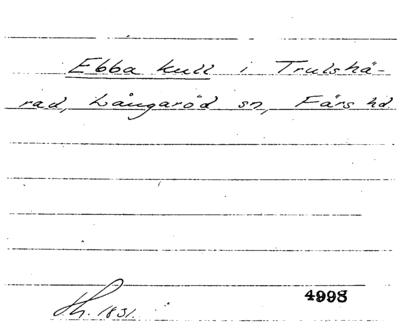 Ebba kull i Trulshä-
rad, Långaröd sn, Färs hd
4998
Th. 1831.